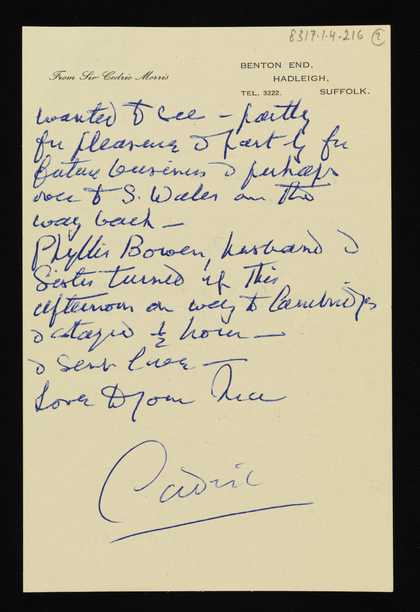 8317.1.4.216
From Sir Cedric Morris
BENTON END,
HADLEIGH,
TEL. 3222. SUFFOLK.
wanted to see – partly
for pleasure & partly for
future business & perhaps
over to S. Wales on the
way back –
Phyllis Bowen, husband &
Sister turned up this
afternoon on way to Cambridge
& stayed ½ hour –
& sent love –
Love to you
Cedric